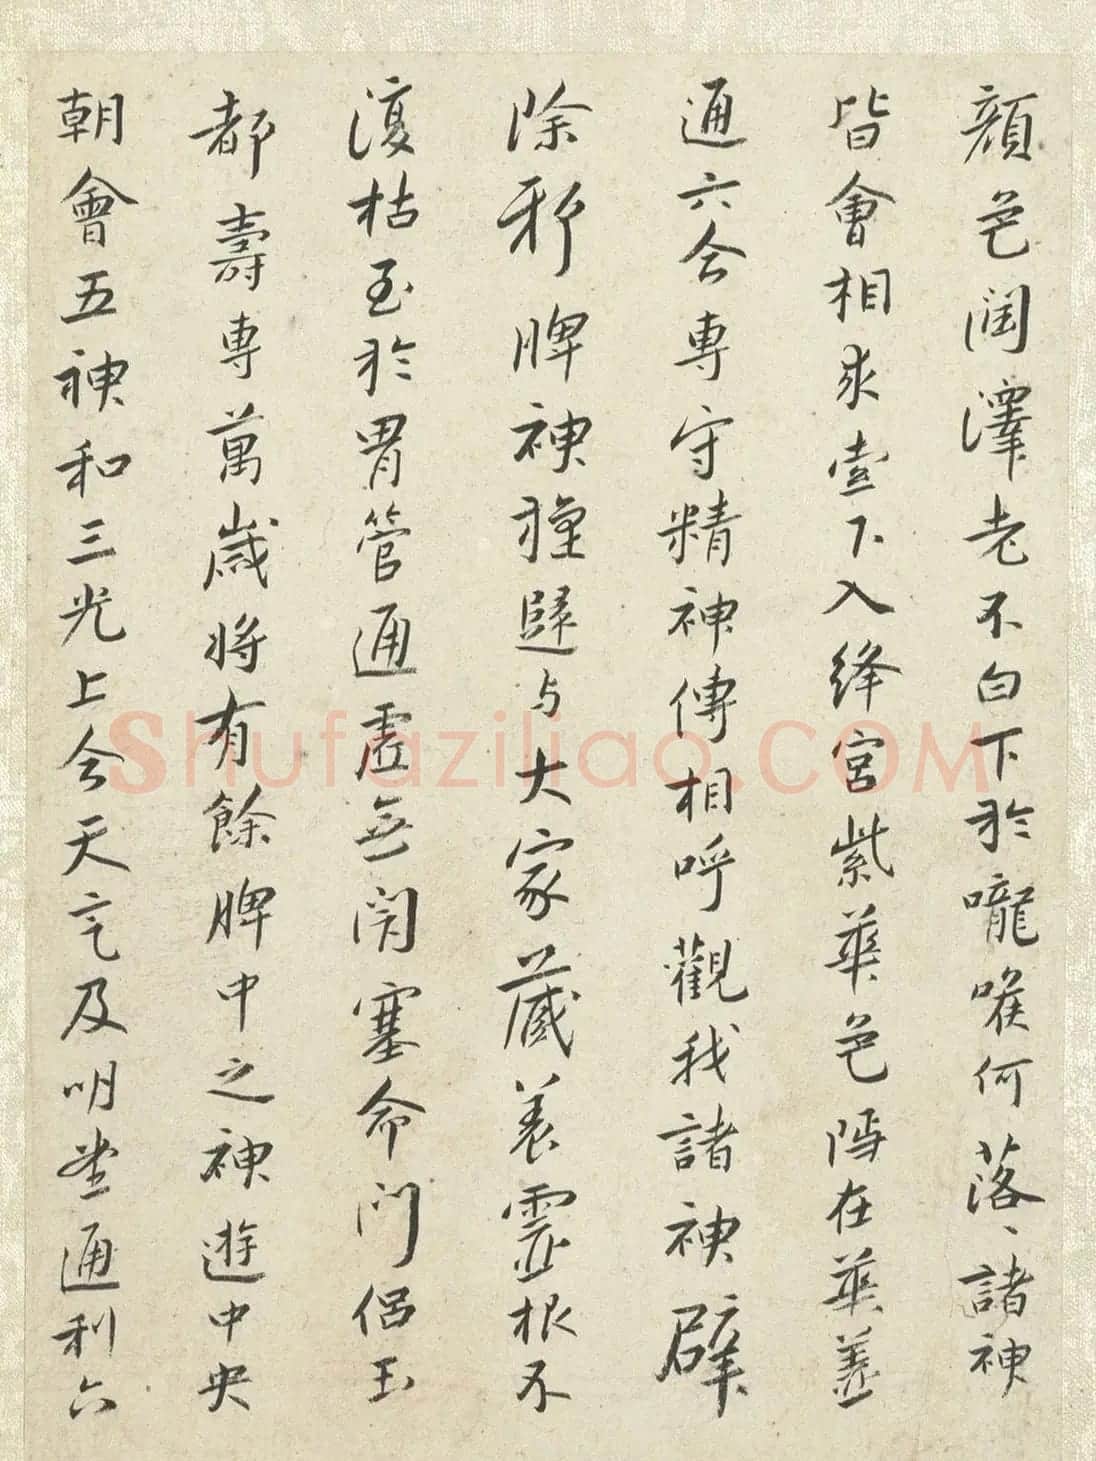 顏色潤澤老不白下於嚨喉何落、諸神
皆會相求壹下入絳宮紫華色隱在華蓋
通六合專守精神傳相呼觀我諸神辟
除邪脾神還歸與大家藏養靈根不
復枯至於胃管通虛無閉塞命門侶玉
都壽專萬歲將有餘脾中之神遊中央
朝會五神和三光上合天氣及明堂通利六
Shufaziliao.COM